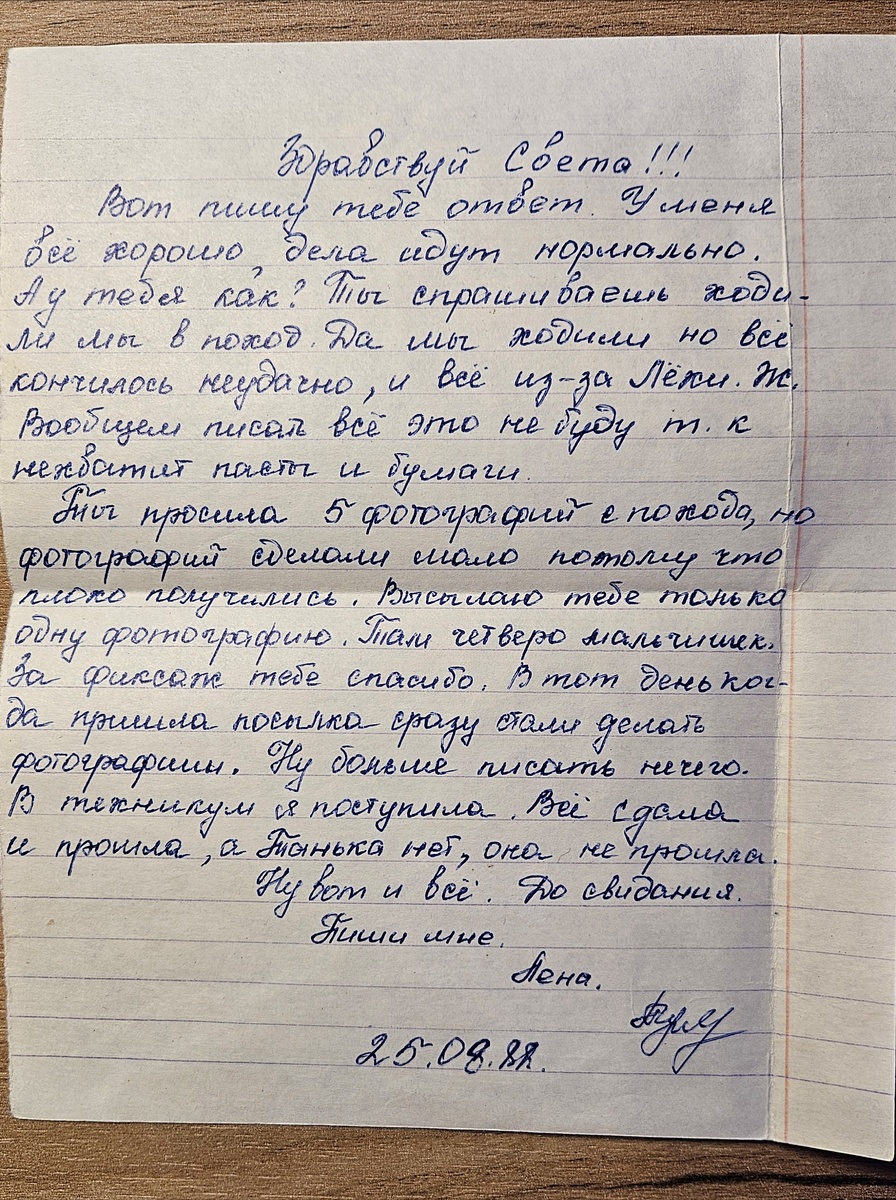 Здравствуй Света!!!
Вот пишу тебе ответ. У меня
всё хорошо, дела идут нормально.
А у тебя как? Ты спрашиваешь ходи-
ли мы в поход. Да мы ходили но всё
кончилось неудачно, и всё из-за Лёхи. Ж.
Вообщем писать всё это не буду т. к
нехватит пасты и бумаги.
Ты просила 5 фотографий с похода, но
фотографий сделали мало потому что
плохо получились. Высылаю тебе только
одну фотографию. Там четверо мальчишек.
За фиксаж тебе спасибо. В тот день ког-
да пришла посылка сразу стали делать
фотографии. Ну больше писать нечего.
В техникум я поступила. Всё сдала
и прошла, а Танька нет, она не прошла.
Ну вот и всё. До свидания.
Пиши мне.
Лена.
25.08.88.